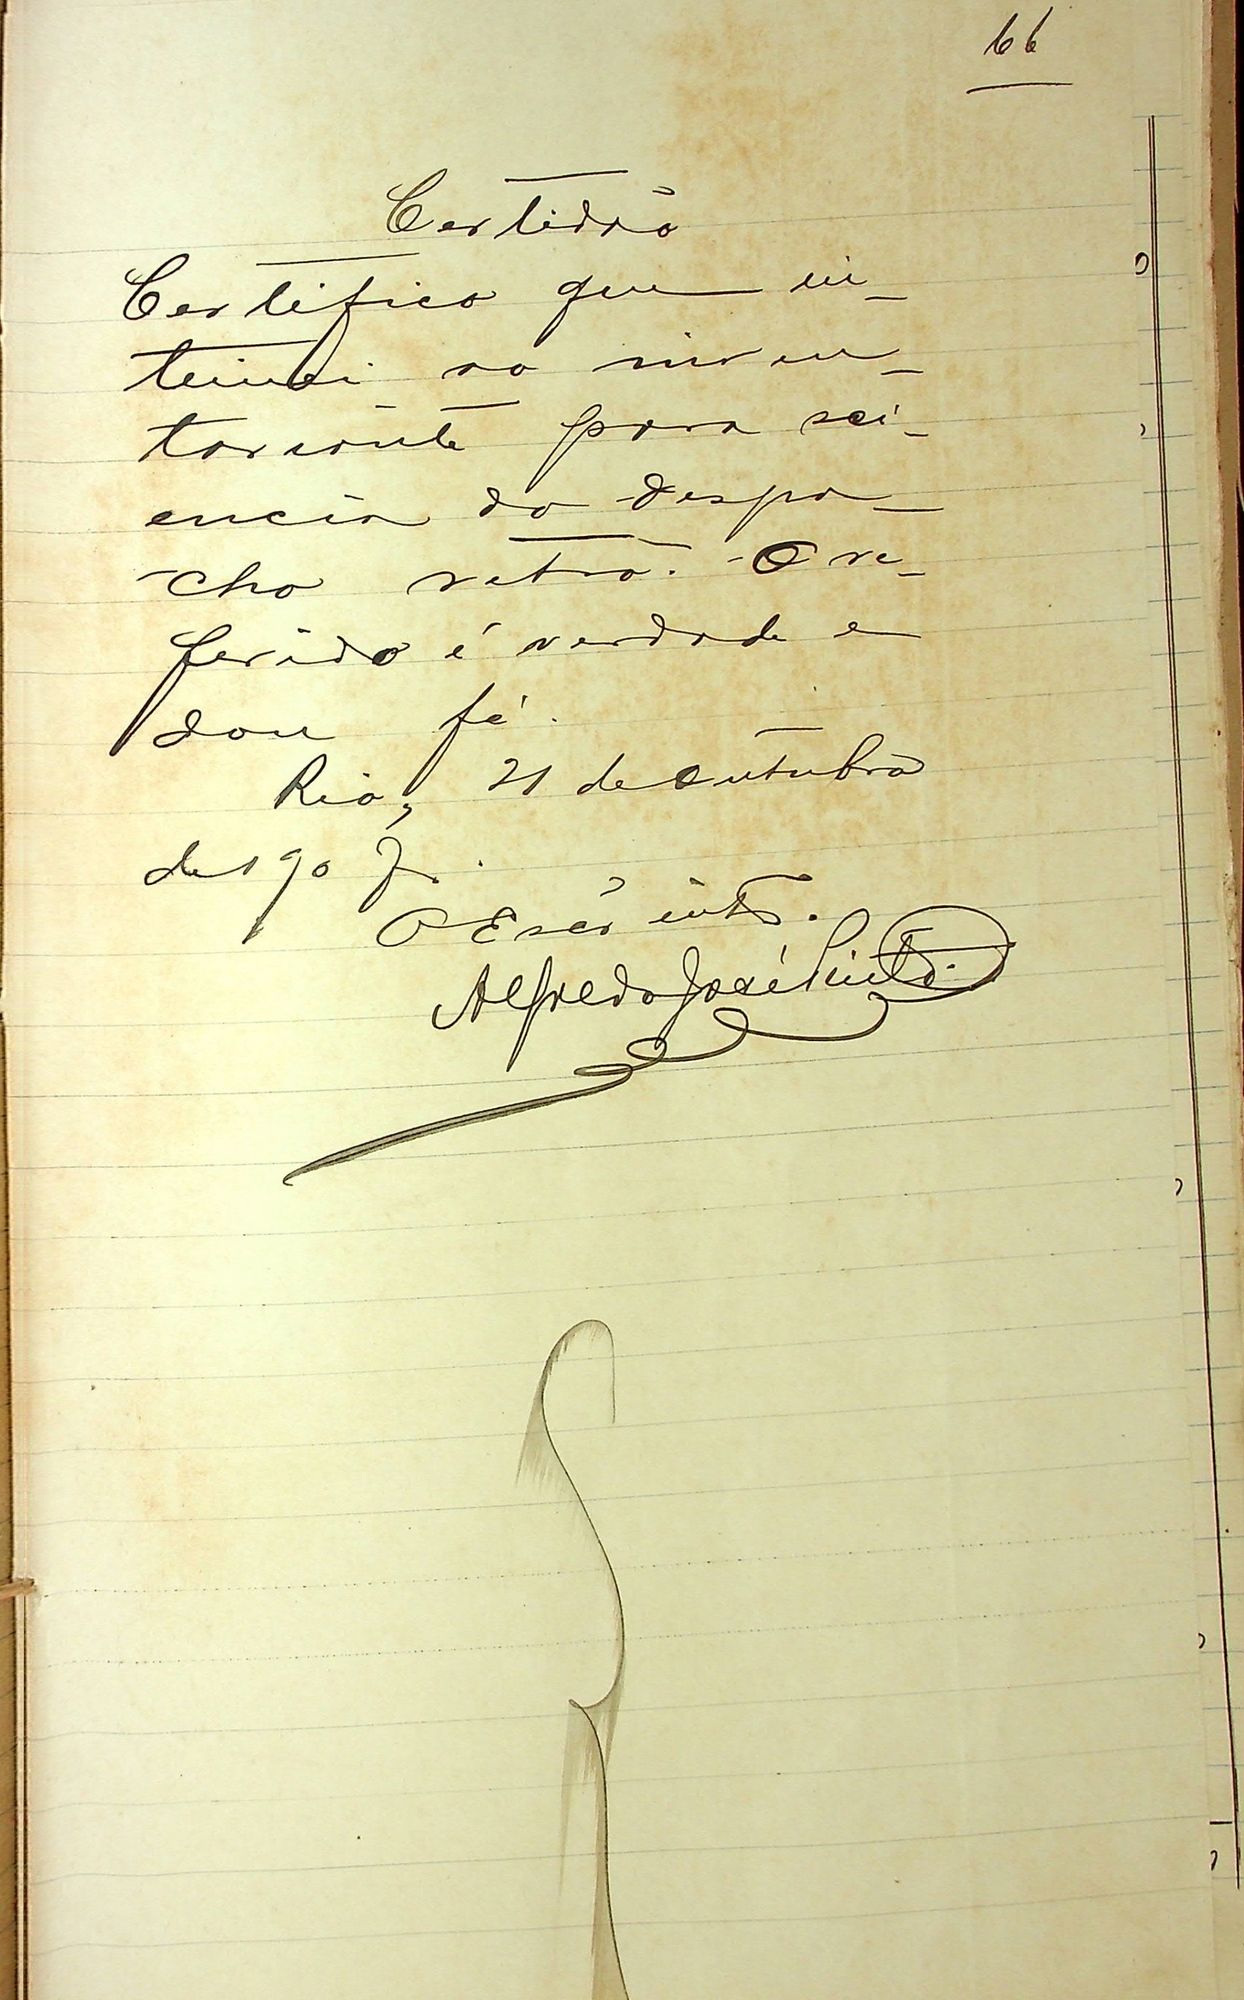 66
Certidão
Certifico que in-
timei ao inven-
tariante para sci-
encia do despa-
cho retro. O re-
ferido é verdade e
dou fé.
Rio, 21 de outubro
de 1907.
O Escr intº.
Alfredo José Pinto.